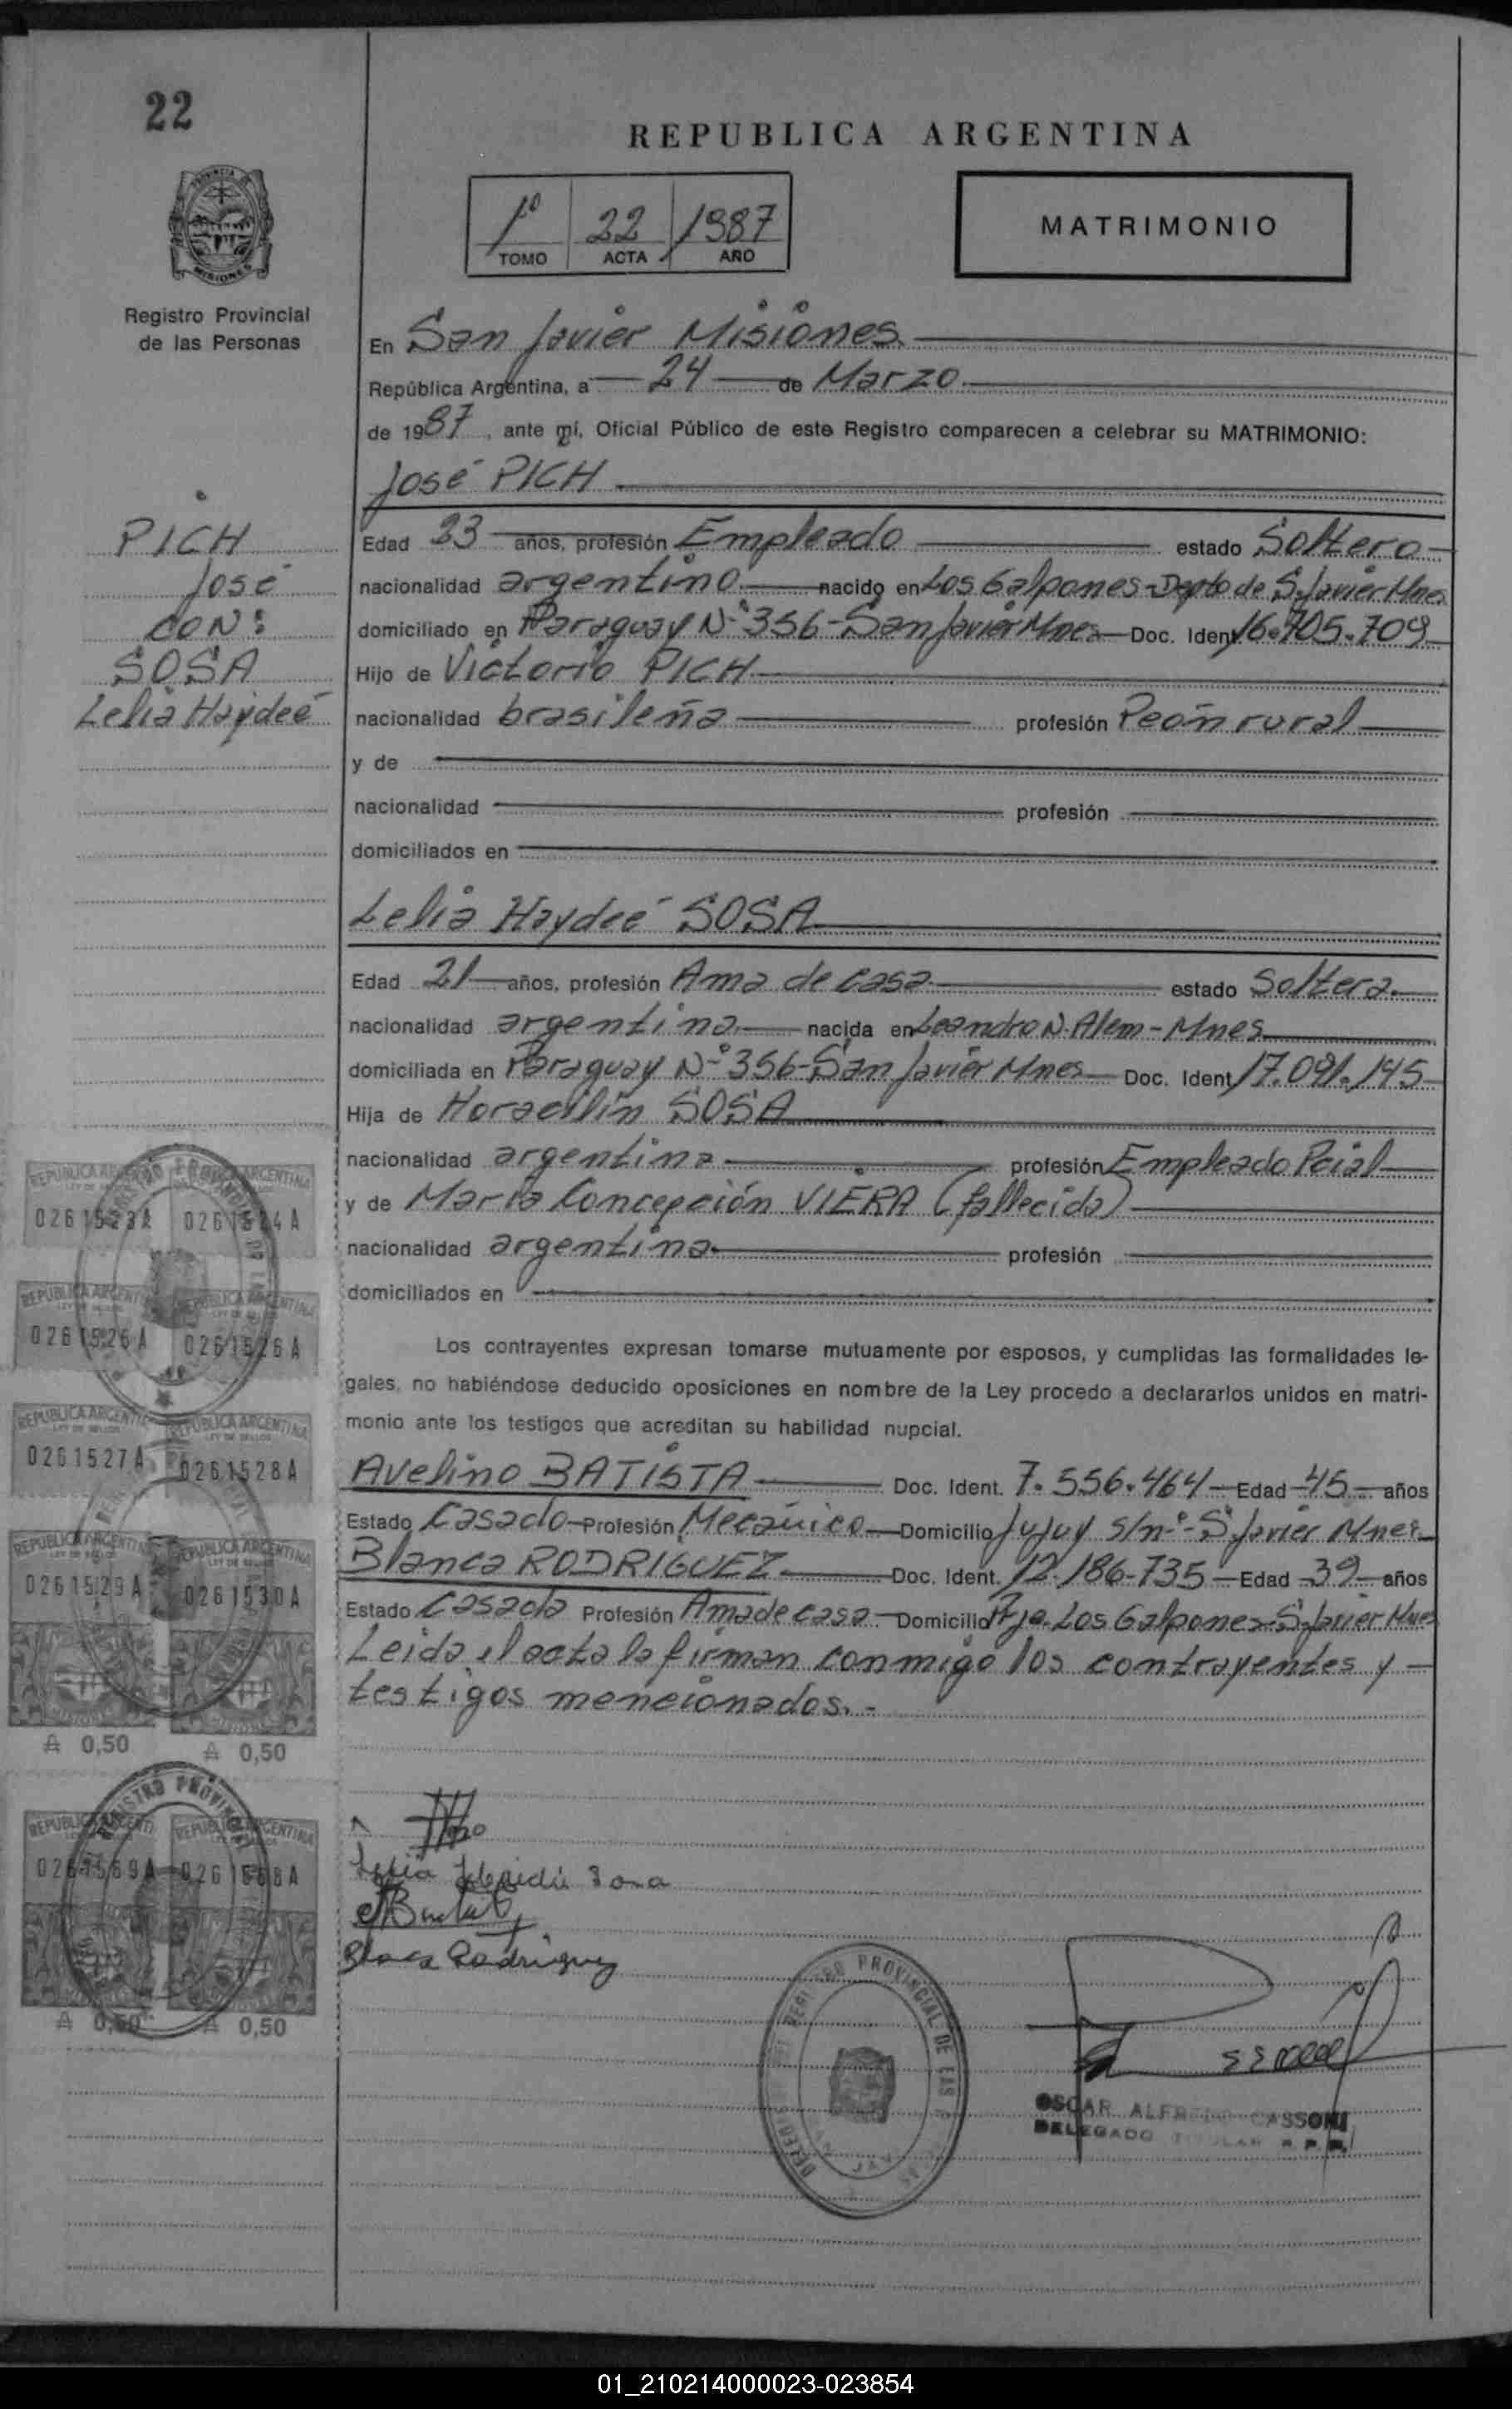 22
REPUBLICA ARGENTINA
1º 22 1987
TOMO ACTA AÑO
MATRIMONIO
Registro Provincial
de las Personas
En San Javier Misiones
República Argentina, a 24 de Marzo
de 1987, ante mí, Oficial Público de este Registro comparecen a celebrar su MATRIMONIO:
José PICH
PICH
José
CON:
SOSA
Lelia Haydeé
Edad 23 años, profesión Empleado estado Soltero
nacionalidad argentino nacido en Los Galpones-Depto de S. Javier Mnes
domiciliado en Paraguay Nº 356-San Javier Mnes Doc. Ident 16.705.709
Hijo de Victorio PICH
nacionalidad brasileña profesión Peón rural
y de
nacionalidad profesión
domiciliados en
Lelia Haydeé SOSA
Edad 21 años, profesión Ama de casa estado Soltera
nacionalidad argentina nacida en Leandro N. Alem-Mnes
domiciliada en Paraguay Nº 356-San Javier Mnes Doc. Ident 17.091.145
Hija de SOSA
nacionalidad argentina profesión Empleado Pcial
y de María Concepción VIERA (fallecida)
nacionalidad argentina profesión
domiciliados en
Los contrayentes expresan tomarse mutuamente por esposos, y cumplidas las formalidades le-
gales, no habiéndose deducido oposiciones en nombre de la Ley procedo a declararlos unidos en matri-
monio ante los testigos que acreditan su habilidad nupcial.
Avelino BATISTA Doc. Ident. 7.556.464 Edad 45 años
Estado Casado Profesión Mecánico Domicilio Jujuy s/nº-S. Javier Mnes
Blanca RODRIGUEZ Doc. Ident. 12.186.735 Edad 39 años
Estado Casada Profesión Ama de casa Domicilio Pje. Los Galpones-S. Javier Mnes
Leida el acta la firman conmigo los contrayentes y
testigos mencionados.-
REPUBLICA ARGENTINA
0261523A 0261524A
REPUBLICA ARGENTINA
0261526A
REPUBLICA ARGENTINA
0261527A 0261528A
REPUBLICA ARGENTINA
0261529A 0261530A
₳ 0,50 ₳ 0,50
REPUBLICA ARGENTINA
0261569A 0261568A
₳ 0,50 ₳ 0,50
Blanca Rodriguez
REGISTRO PROVINCIAL DE LAS
OSCAR ALFREDO CASSONI
DELEGADO TITULAR R.P.P.
01_210214000023-023854